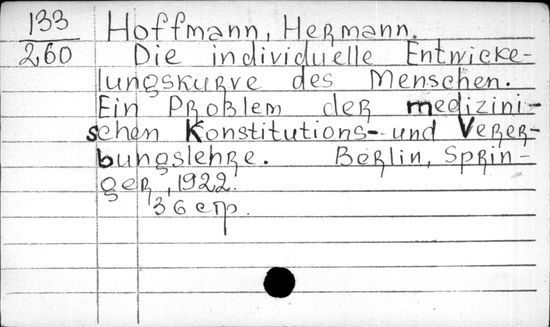 133 Hoffmann, Hermann.
260 Die individuelle Entwicke-
lungskurve des Menschen.
Ein Problem der medizini-
schen Konstitutions- und Verer-
bungslehre. Berlin, Sprin-
ger, 1922.
36 стр.